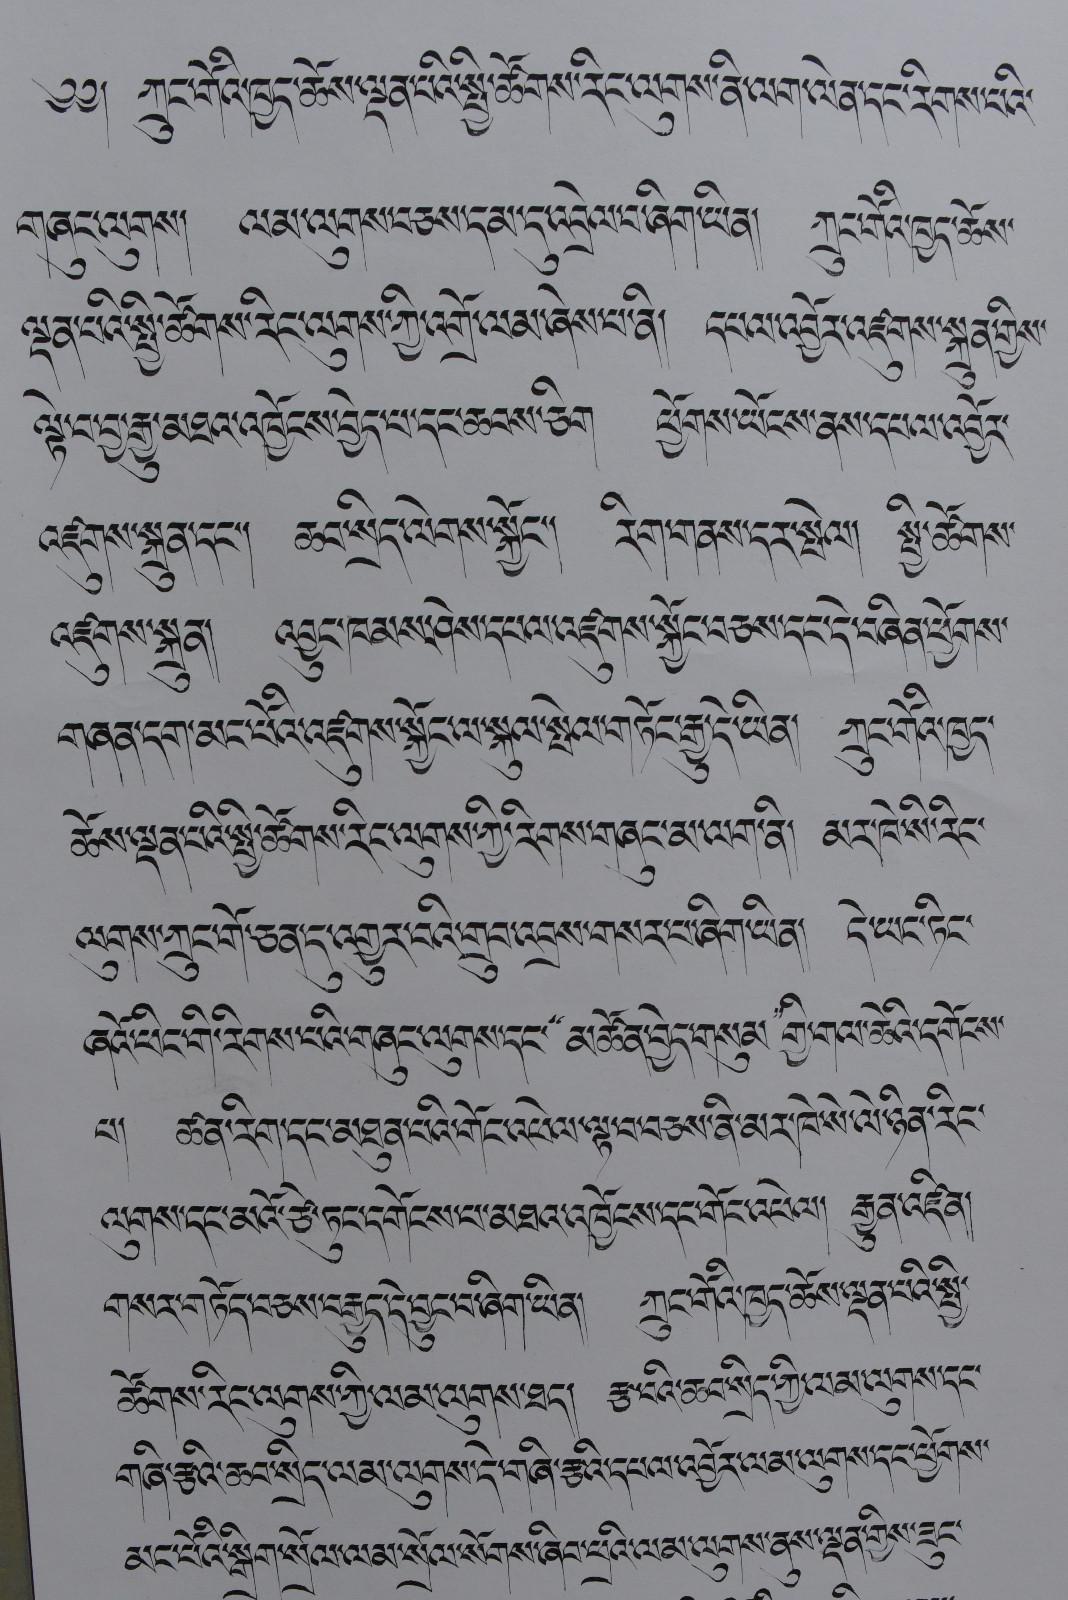 ༡༡། ཀྲུང་གོའི་ཁྱད་ཆོས་ལྡན་པའི་སྤྱི་ཚོགས་རིང་ལུགས་ནི་ལག་ལེན་དང་རིགས་པའི་
གཞུང་ལུགས། ལམ་ལུགས་བཅས་དམ་དུ་འབྲེལ་བ་ཞིག་ཡིན། ཀྲུང་གོའི་ཁྱད་ཆོས་
ལྡན་པའི་སྤྱི་ཚོགས་རིང་ལུགས་ཀྱི་འགྲོ་ལམ་ཞེས་པ་ནི། དཔལ་འབྱོར་འཛུགས་སྐྲུན་གྱིས་
ལྟེ་བ་བྱ་རྒྱུ་མཐའ་འཁྱོངས་བྱེད་པ་དང་ཆབས་ཅིག ཕྱོགས་ཡོངས་ནས་དཔལ་འབྱོར་
འཛུགས་སྐྲུན་དང་། ཆབ་སྲིད་ལེགས་སྐྱོང་། རིག་གནས་དར་སྤེལ། སྤྱི་ཚོགས་
འཛུགས་སྐྲུན། འབྱུང་ཁམས་ཤེས་དཔལ་འཛུགས་སྐྱོང་བཅས་དང་དེ་བཞིན་ཕྱོགས་
གཞན་དག་མང་པོའི་འཛུགས་སྐྱོང་ལ་སྐུལ་སྤེལ་གཏོང་རྒྱུ་དེ་ཡིན། ཀྲུང་གོའི་ཁྱད་
ཆོས་ལྡན་པའི་སྤྱི་ཚོགས་རིང་ལུགས་ཀྱི་རིགས་གཞུང་མ་ལག་ནི། མར་ཁེ་སི་རིང་
ལུགས་ཀྲུང་གོ་ཅན་དུ་འགྱུར་བའི་གྲུབ་འབྲས་གསར་པ་ཞིག་ཡིན། དེ་ཡང་ཏིང་
ཞའོ་ཕིང་གི་རིགས་པའི་གཞུང་ལུགས་དང་“མཚོན་བྱེད་གསུམ”གྱི་གལ་ཆེའི་དགོངས་
པ། ཚན་རིག་དང་མཐུན་པའི་གོང་འཕེལ་ལྟ་བ་བཅས་ནི་མར་ཁེ་སེ་ལེ་ཉིན་རིང་
ལུགས་དང་མའོ་ཙེ་ཏུང་དགོངས་པ་མཐའ་འཁྱོངས་དང་གོང་འཕེལ། རྒྱུན་འཛིན།
གསར་གཏོད་བཅས་བརྒྱུད་དེ་བྱུང་བ་ཞིག་ཡིན། ཀྲུང་གོའི་ཁྱད་ཆོས་ལྡན་པའི་སྤྱི་
ཚོགས་རིང་ལུགས་ཀྱི་ལམ་ལུགས་ཐད། རྩ་བའི་ཆབ་སྲིད་ཀྱི་ལམ་ལུགས་དང་
གཞི་རྩའི་ཆབ་སྲིད་ལམ་ལུགས་དེ་གཞི་རྩའི་དཔལ་འབྱོར་ལམ་ལུགས་དང་ཕྱོགས་
མང་པོའི་སྒྲིག་སྲོལ་ལམ་སྲོལ་སོགས་ཞིབ་ཕྲའི་ལམ་ལུགས་ནུས་ལྡན་གྱིས་ཟུང་